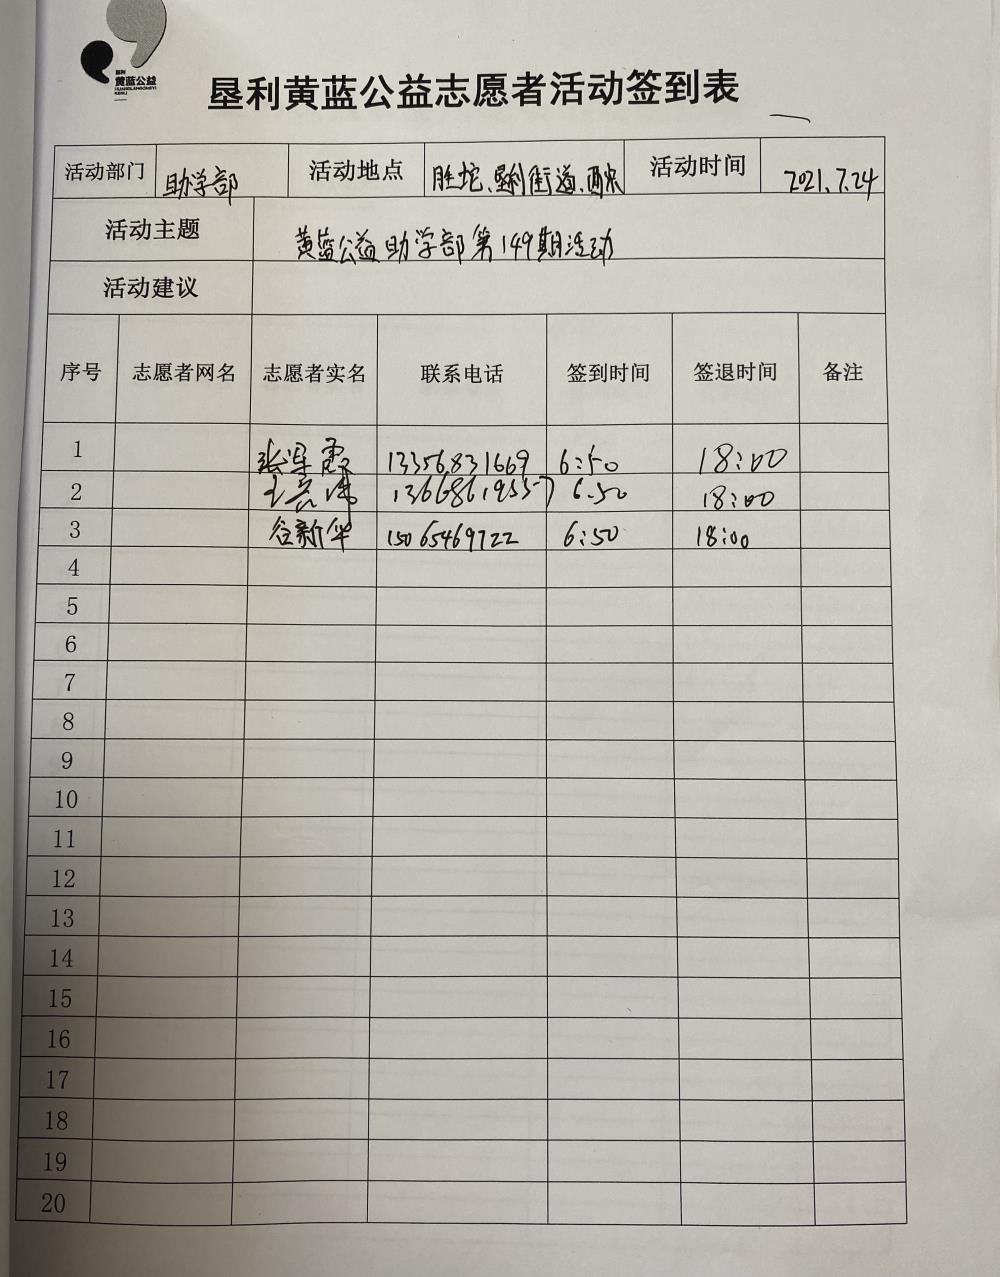 垦利
黄蓝公益
HUANGLANGONGYI
KENLI
垦利黄蓝公益志愿者活动签到表
活动部门 助学部 活动地点 胜坨、垦利街道、 活动时间 2021.7.24
活动主题 黄蓝公益助学部第149期活动
活动建议
序号 志愿者网名 志愿者实名 联系电话 签到时间 签退时间 备注
1 张 霞 13356831669 6:50 18:00
2 王 13668619557 6.50 18:00
3 谷新华 15065469722 6:50 18:00
4
5
6
7
8
9
10
11
12
13
14
15
16
17
18
19
20